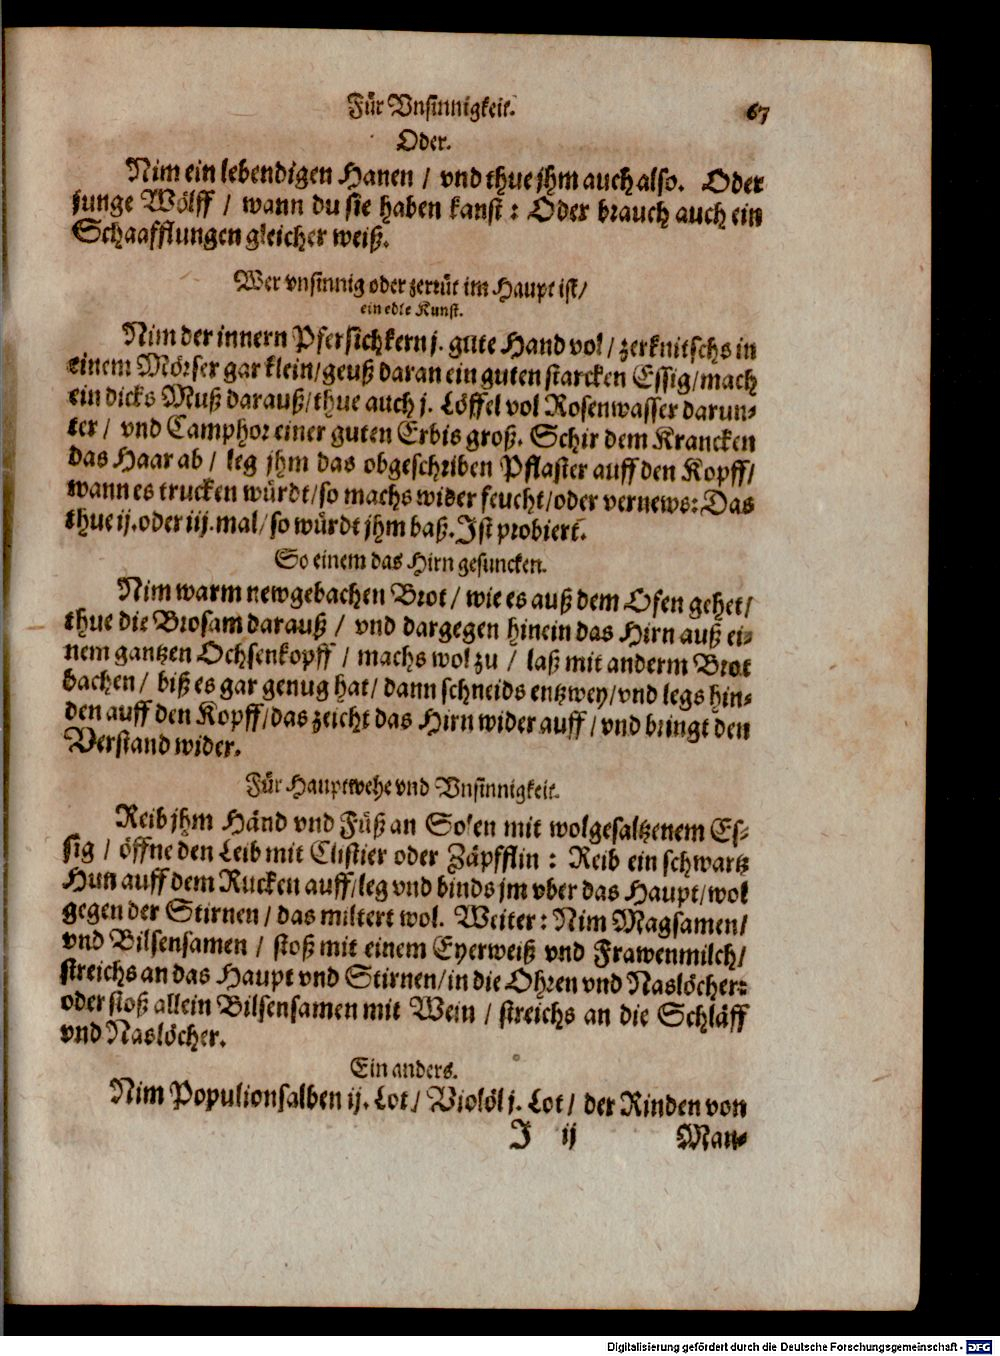 Für Vnsinnigkeit. 67
Oder.
Nim ein lebendigen Hanen / vnd thue jhm auch also. Oder
junge Wölff / wann du sie haben kanst : Oder brauch auch ein
Schaafflungen gleicher weiß.
Wer vnsinnig oder zerrüt im Haupt ist/
ein edle Kunst.
Nim der innern Pfersichkern j. gute Hand vol / zerknitschs in
einem Mörser gar klein/geuß daran ein guten starcken Essig/mach
ein dicks Muß darauß/thue auch j. Löffel vol Rosenwasser darun-
ter / vnd Camphor einer guten Erbis groß. Schir dem Krancken
das Haar ab / leg jhm das obgeschriben Pflaster auff den Kopff/
wann es trucken würdt/so machs wider feucht/oder vernews: Das
thue ij. oder iij. mal/so würdt jhm baß. Ist probiert.
So einem das Hirn gesuncken.
Nim warm newgebachen Brot / wie es auß dem Ofen gehet/
thue die Brosam darauß / vnd dargegen hinein das Hirn auß ei-
nem gantzen Ochsenkopff / machs wol zu / laß mit anderm Brot
bachen / biß es gar genug hat/ dann schneids entzwey/vnd legs hin-
den auff den Kopff/das zeicht das Hirn wider auff / vnd bringt den
Verstand wider.
Für Hauptwehe vnd Vnsinnigkeit.
Reib jhm Händ vnd Füß an Solen mit wolgesaltzenem Es-
sig / öffne den Leib mit Clistier oder Zäpfflin : Reib ein schwartz
Hun auff dem Rucken auff/leg vnd binds jm vber das Haupt/wol
gegen der Stirnen / das miltert wol. Weiter: Nim Magsamen/
vnd Bilsensamen / stoß mit einem Eyerweiß vnd Frawenmilch/
streichs an das Haupt vnd Stirnen/in die Ohren vnd Naslöcher:
oder stoß allein Bilsensamen mit Wein / streichs an die Schläff
vnd Naslöcher.
Ein anders.
Nim Populionsalben ij. Lot/ Violöl j. Lot/ der Rinden von
I ij Man-
Digitalisierung gefördert durch die Deutsche Forschungsgemeinschaft - DFG